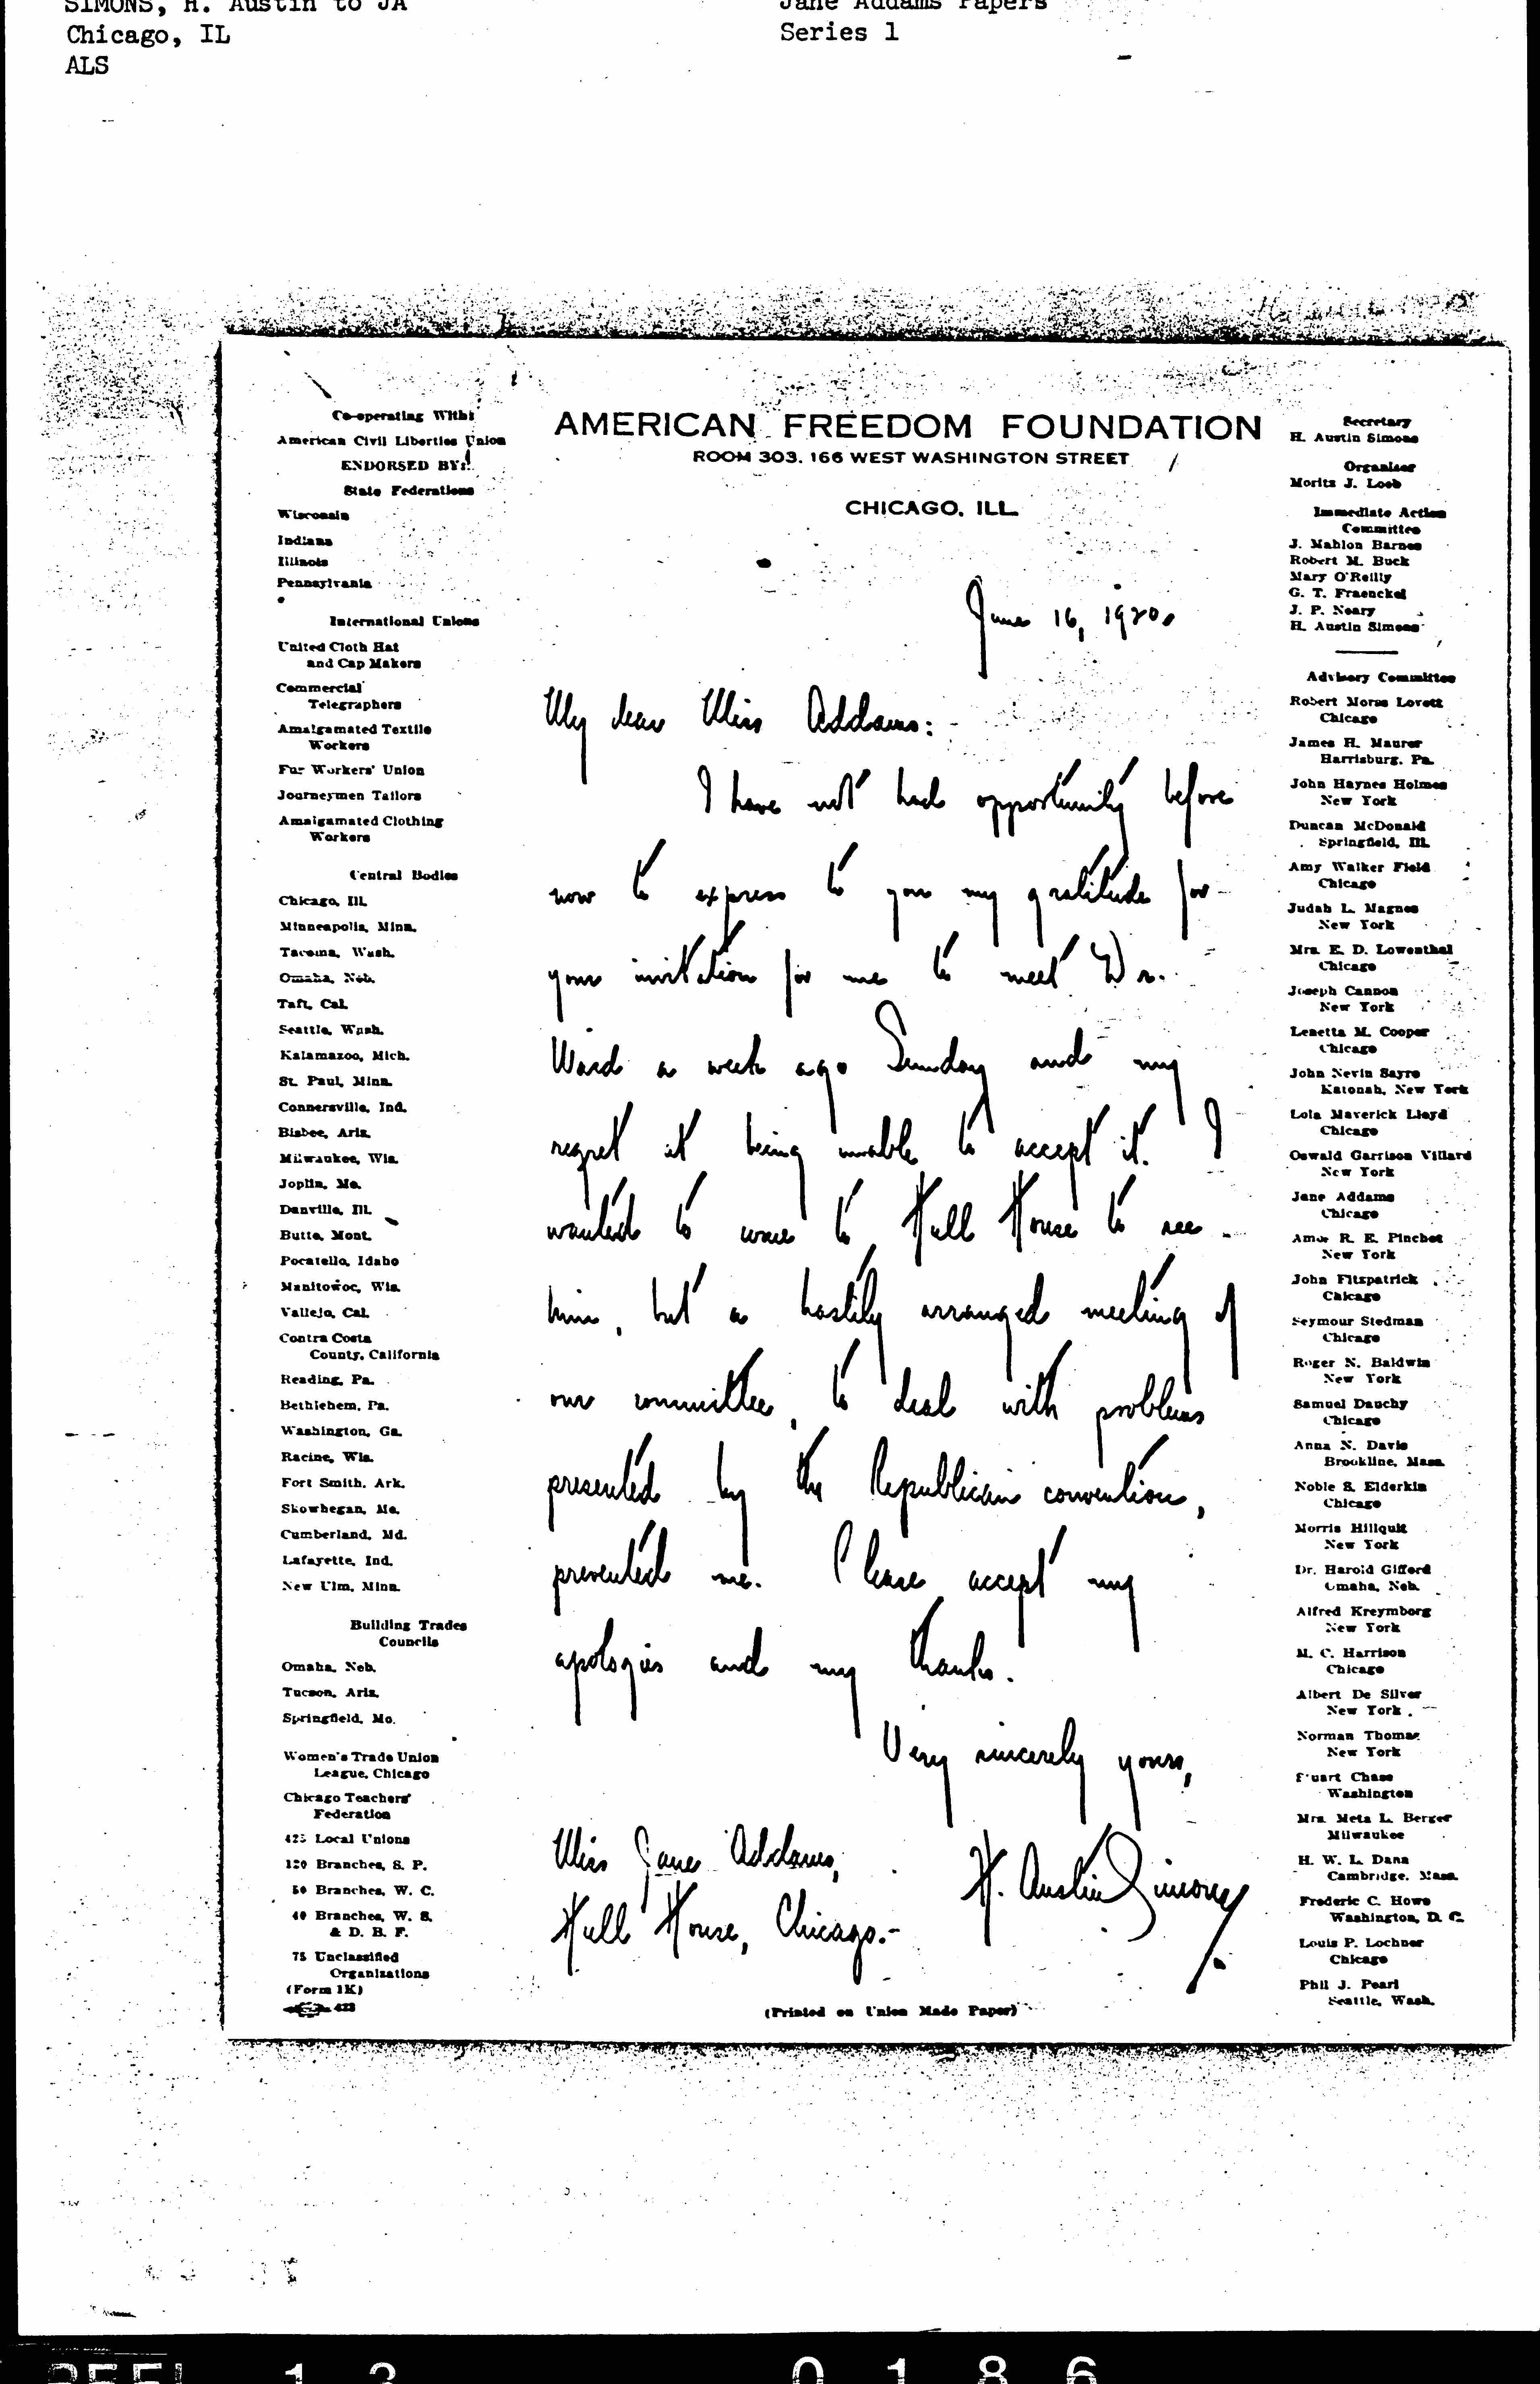 SIMONS, H. Austin to JA
Chicago, IL
ALS
Jane Addams Papers
Series 1
Co-operating With:
American Civil Liberties Union
ENDORSED BY:
State Federations
Wisconsin
Indiana
Illinois
Pennsylvania
International Unions
United Cloth Hat
and Cap Makers
Commercial
Telegraphers
Amalgamated Textile
Workers
Fur Workers' Union
Journeymen Tailors
Amalgamated Clothing
Workers
Central Bodies
Chicago, Ill.
Minneapolis, Minn.
Tacoma, Wash.
Omaha, Neb.
Taft, Cal.
Seattle, Wash.
Kalamazoo, Mich.
St. Paul, Minn.
Connersville, Ind.
Bisbee, Ariz.
Milwaukee, Wis.
Joplin, Mo.
Danville, Ill.
Butte, Mont.
Pocatello, Idaho
Manitowoc, Wis.
Vallejo, Cal.
Contra Costa
County, California
Reading, Pa.
Bethlehem, Pa.
Washington, Ga.
Racine, Wis.
Fort Smith, Ark.
Skowhegan, Me.
Cumberland, Md.
Lafayette, Ind.
New Ulm, Minn.
Building Trades
Councils
Omaha, Neb.
Tucson, Ariz.
Springfield, Mo.
Women's Trade Union
League, Chicago
Chicago Teachers'
Federation
425 Local Unions
120 Branches, S. P.
50 Branches, W. C.
40 Branches, W. S.
& D. B. F.
75 Unclassified
Organizations
(Form 1K)
423
AMERICAN FREEDOM FOUNDATION
ROOM 303, 166 WEST WASHINGTON STREET
CHICAGO, ILL.
June 16, 1920.
My dear Miss Addams:
I have not had opportunity before
now to express to you my gratitude for
your invitation for me to meet Dr.
Ward a week ago Sunday and my
regret at being unable to accept it. I
wanted to come to Hull House to see
him, but a hastily arranged meeting of
our committee, to deal with problems
presented by the Republican convention,
prevented me. Please accept my
apologies and my thanks.
Very sincerely yours,
H. Austin Simons
Miss Jane Addams,
Hull House, Chicago.-
(Printed on Union Made Paper)
Secretary
H. Austin Simons
Organizer
Moritz J. Loeb
Immediate Action
Committee
J. Mahlon Barnes
Robert M. Buck
Mary O'Reilly
G. T. Fraenckel
J. P. Neary
H. Austin Simons
Advisory Committee
Robert Morse Lovett
Chicago
James H. Maurer
Harrisburg, Pa.
John Haynes Holmes
New York
Duncan McDonald
Springfield, Ill.
Amy Walker Field
Chicago
Judah L. Magnes
New York
Mrs. E. D. Lowenthal
Chicago
Joseph Cannon
New York
Lenetta M. Cooper
Chicago
John Nevin Sayre
Katonah, New York
Lola Maverick Lloyd
Chicago
Oswald Garrison Villard
New York
Jane Addams
Chicago
Amos R. E. Pinchot
New York
John Fitzpatrick
Chicago
Seymour Stedman
Chicago
Roger N. Baldwin
New York
Samuel Dauchy
Chicago
Anna N. Davis
Brookline, Mass.
Noble S. Elderkin
Chicago
Morris Hillquit
New York
Dr. Harold Gifford
Omaha, Neb.
Alfred Kreymborg
New York
M. C. Harrison
Chicago
Albert De Silver
New York
Norman Thomas
New York
Stuart Chase
Washington
Mrs. Meta L. Berger
Milwaukee
H. W. L. Dana
Cambridge, Mass.
Frederic C. Howe
Washington, D. C.
Louis P. Lochner
Chicago
Phil J. Pearl
Seattle, Wash.
REEL 13 0186